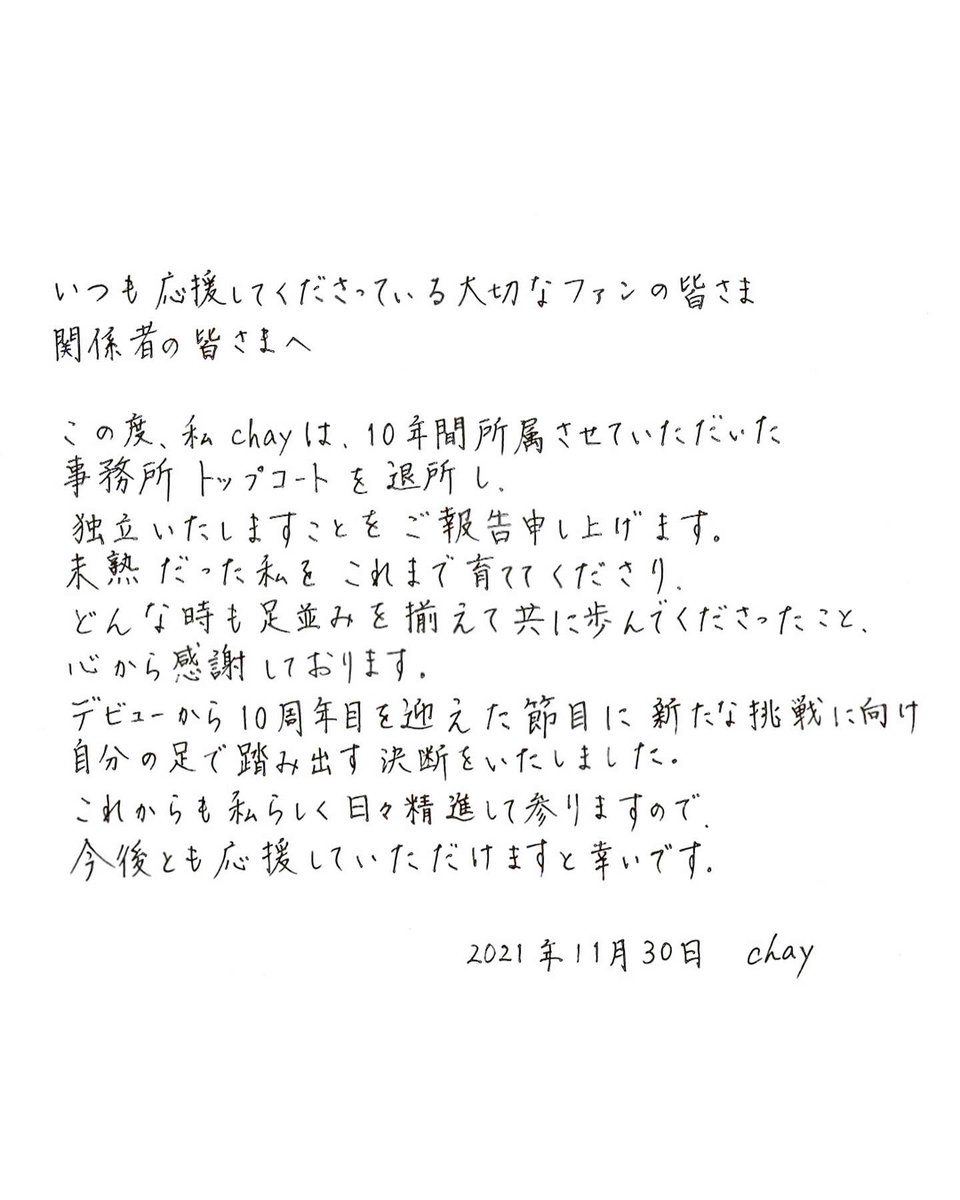 いつも応援してくださっている大切なファンの皆さま
関係者の皆さまへ
この度、私chayは、10年間所属させていただいた
事務所トップコートを退所し、
独立いたしますことをご報告申し上げます。
未熟だった私をこれまで育ててくださり、
どんな時も足並みを揃えて共に歩んでくださったこと、
心から感謝しております。
デビューから10周年目を迎えた節目に新たな挑戦に向け
自分の足で踏み出す決断をいたしました。
これからも私らしく日々精進して参りますので、
今後とも応援していただけますと幸いです。
2021年11月30日 chay